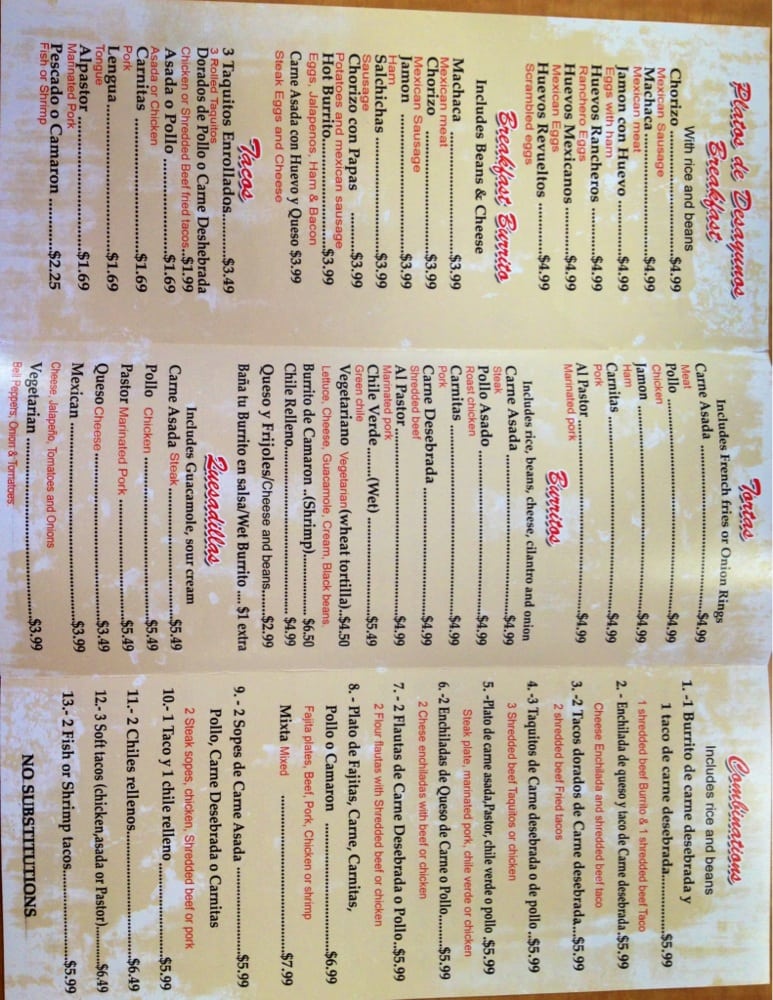 Platos de Desayunos
Breakfast
With rice and beans
Chorizo ..........................$4.99
Mexican Sausage
Machaca ..........................$4.99
Mexican meat
Jamon con Huevo ..............$4.99
Eggs with ham
Huevos Rancheros ............$4.99
Ranchero Eggs
Huevos Mexicanos ............$4.99
Mexican Eggs
Huevos Revueltos ............$4.99
Scrambled eggs
Breakfast Burrito
Includes Beans & Cheese
Machaca ..........................$3.99
Mexican meat
Chorizo ..........................$3.99
Mexican Sausage
Jamon ..........................$3.99
Ham
Salchichas ..........................$3.99
Sausage
Chorizo con Papas ............$3.99
Potatoes and mexican sausage
Hot Burrito..........................$3.99
Eggs, Jalapenos, Ham & Bacon
Carne Asada con Huevo y Queso $3.99
Steak Eggs and Cheese
Tacos
3 Taquitos Enrollados.........$3.49
3 Rolled Taquitos
Dorados de Pollo o Carne Deshebrada
Chicken or Shredded Beef fried tacos..$1.99
Asada o Pollo ....................$1.69
Asada or Chicken
Carritas ..........................$1.69
Pork
Lengua..........................$1.69
Tongue
Alpastor..........................$1.69
Marinated Pork
Pescado o Camaron ............$2.25
Fish or Shrimp
Tortas
Includes French fries or Onion Rings
Carne Asada ..........................$4.99
Meat
Pollo ..........................$4.99
Chicken
Jamon ..........................$4.99
Ham
Carnitas ..........................$4.99
Pork
Al Pastor ..........................$4.99
Marinated pork
Burritos
Includes rice, beans, cheese, cilantro and onion
Carne Asada ..........................$4.99
Steak
Pollo Asado ..........................$4.99
Roast chicken
Carnitas ..........................$4.99
Pork
Carne Desebrada ..........................$4.99
Shredded beef
Al Pastor ..........................$4.99
Marinated pork
Chile Verde ........(Wet) ..............$5.49
Green chile
Vegetariano Vegetarian(wheat tortilla)..$4.50
Lettuce, Cheese, Guacamole, Cream, Black beans.
Burrito de Camaron ..(Shrimp)............ $6.50
Chile Relleno.......................... $4.99
Queso y Frijoles/Cheese and beans........$2.99
Baña tu Burrito en salsa/Wet Burrito .... $1 extra
Quesadillas
Includes Guacamole, sour cream
Carne Asada Steak ..........................$5.49
Pollo Chicken ..........................$5.49
Pastor Marinated Pork ..........................$5.49
Queso Cheese..........................$3.49
Mexican ..........................$3.99
Cheese, Jalapeño, Tomatoes and Onions
Vegetarian ..........................$3.99
Bell Peppers, Onion & Tomatoes
Combinations
Includes rice and beans
1. -1 Burrito de carne desebrada y
1 taco de carne desebrada............$5.99
1 shredded beef Burrito & 1 shredded beef Taco
2. - Enchilada de queso y taco de Carne desebrada .$5.99
Cheese Enchilada and shredded beef taco
3. -2 Tacos dorados de Carne desebrada....$5.99
2 shredded beef Fried tacos
4. -3 Taquitos de Carne desebrada o de pollo ..$5.99
3 Shredded beef Taquitos or chicken
5. -Plato de carne asada,Pastor, chile verde o pollo .$5.99
Steak plate, marinated pork, chile verde or chicken
6. -2 Enchiladas de Queso de Carne o Pollo........$5.99
2 Chese enchiladas with beef or chicken
7. - 2 Flautas de Carne Desebrada o Pollo..$5.99
2 Flour flautas with Shredded beef or chicken
8. - Plato de Fajitas, Carne, Carnitas,
Pollo o Camaron ..........................$6.99
Fajita plates, Beef, Pork, Chicken or shrimp
Mixta Mixed ..........................$7.99
9. - 2 Sopes de Carne Asada ..................$5.99
Pollo, Carne Desebrada o Carnitas
2 Steak sopes, chicken, Shredded beef or pork
10.- 1 Taco y 1 chile relleno ..................$5.99
11.- 2 Chiles rellenos..........................$6.49
12.- 3 Soft tacos (chicken,asada or Pastor)..........$6.49
13.- 2 Fish or Shrimp tacos..................$5.99
NO SUBSTITUTIONS